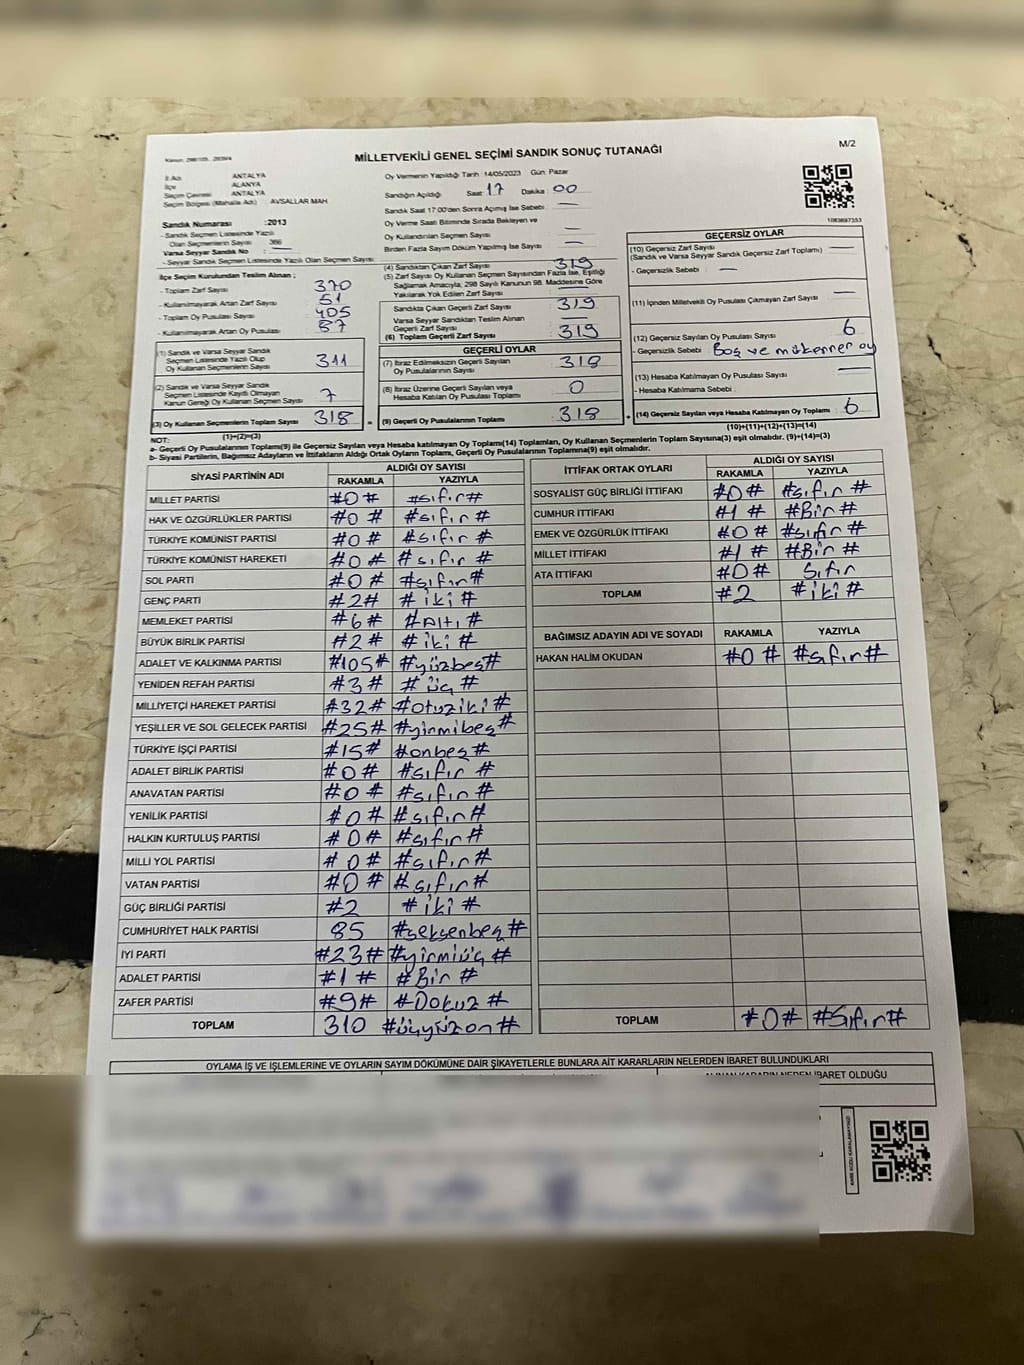 MİLLETVEKİLİ GENEL SEÇİMİ SANDIK SONUÇ TUTANAĞI
M/2
İl Adı ANTALYA
İlçe ALANYA
Seçim Çevresi ANTALYA
Seçim Bölgesi (Mahalle Adı) : AVSALLAR MAH.
Sandık Numarası :2013
- Sandık Seçmen Listesinde Yazılı
Olan Seçmenlerin Sayısı 366
Varsa Seyyar Sandık No
- Seyyar Sandık Seçmen Listesinde Yazılı Olan Seçmen Sayısı
İlçe Seçim Kurulundan Teslim Alınan ;
- Toplam Zarf Sayısı 370
- Kullanılmayarak Artan Zarf Sayısı 51
- Toplam Oy Pusulası Sayısı 405
- Kullanılmayarak Artan Oy Pusulası 87
(1) Sandık ve Varsa Seyyar Sandık
Seçmen Listesinde Yazılı Olup
Oy Kullanan Seçmen Sayısı 311
(2) Sandık ve Varsa Seyyar Sandık
Seçmen Listesinde Kayıtlı Olmayan
Kanun Gereği Oy Kullanan Seçmen Sayısı 7
(3) Oy Kullanan Seçmenlerin Toplam Sayısı 318
(1)+(2)=(3)
Oy Vermenin Yapıldığı Tarih 14/05/2023 Gün: Pazar
Sandığın Açıldığı Saat 17 Dakika 00
Sandık Saat 17:00'den Sonra Açılmış İse Sebebi
Oy Verme Saati Bitiminde Sırada Bekleyen ve
Oy Kullandırılan Seçmen Sayısı
Birden Fazla Sayım Döküm Yapılmış İse Sayısı
(4) Sandıktan Çıkan Zarf Sayısı 319
(5) Zarf Sayısı Oy Kullanan Seçmen Sayısından Fazla İse, Eşitliği
Sağlamak Amacıyla, 298 Sayılı Kanunun 98. Maddesine Göre
Yakılarak Yok Edilen Zarf Sayısı
Sandıkta Çıkan Geçerli Zarf Sayısı 319
Varsa Seyyar Sandıktan Teslim Alınan
Geçerli Zarf Sayısı
(6) Toplam Geçerli Zarf Sayısı 319
GEÇERLİ OYLAR
(7) İtiraz Edilmeksizin Geçerli Sayılan
Oy Pusulalarının Sayısı 318
(8) İtiraz Üzerine Geçerli Sayılan veya
Hesaba Katılan Oy Pusulası Toplamı 0
= (9) Geçerli Oy Pusulalarının Toplamı 318
1083697353
GEÇERSİZ OYLAR
(10) Geçersiz Zarf Sayısı
(Sandık ve Varsa Seyyar Sandık Geçersiz Zarf Toplamı)
- Geçersizlik Sebebi :
(11) İçinden Milletvekili Oy Pusulası Çıkmayan Zarf Sayısı
(12) Geçersiz Sayılan Oy Pusulası Sayısı 6
- Geçersizlik Sebebi : Boş ve mükerrer oy
(13) Hesaba Katılmayan Oy Pusulası Sayısı
- Hesaba Katılmama Sebebi :
+ (14) Geçersiz Sayılan veya Hesaba Katılmayan Oy Toplamı 6
(10)+(11)+(12)+(13)=(14)
NOT:
a- Geçerli Oy Pusulalarının Toplamı(9) ile Geçersiz Sayılan veya Hesaba katılmayan Oy Toplamı(14) Toplamları, Oy Kullanan Seçmenlerin Toplam Sayısına(3) eşit olmalıdır. (9)+(14)=(3)
b- Siyasi Partilerin, Bağımsız Adayların ve İttifakların Aldığı Ortak Oyların Toplamı, Geçerli Oy Pusulalarının Toplamına(9) eşit olmalıdır.
SİYASİ PARTİNİN ADI ALDIĞI OY SAYISI
RAKAMLA YAZIYLA
MİLLET PARTİSİ #0# #sıfır#
HAK VE ÖZGÜRLÜKLER PARTİSİ #0# #sıfır#
TÜRKİYE KOMÜNİST PARTİSİ #0# #sıfır#
TÜRKİYE KOMÜNİST HAREKETİ #0# #sıfır#
SOL PARTİ #0# #sıfır#
GENÇ PARTİ #2# #iki#
MEMLEKET PARTİSİ #6# #Altı#
BÜYÜK BİRLİK PARTİSİ #2# #iki#
ADALET VE KALKINMA PARTİSİ #105# #yüzbeş#
YENİDEN REFAH PARTİSİ #3# #üç#
MİLLİYETÇİ HAREKET PARTİSİ #32# #otuziki#
YEŞİLLER VE SOL GELECEK PARTİSİ #25# #yirmibeş#
TÜRKİYE İŞÇİ PARTİSİ #15# #onbeş#
ADALET BİRLİK PARTİSİ #0# #sıfır#
ANAVATAN PARTİSİ #0# #sıfır#
YENİLİK PARTİSİ #0# #sıfır#
HALKIN KURTULUŞ PARTİSİ #0# #sıfır#
MİLLİ YOL PARTİSİ #0# #sıfır#
VATAN PARTİSİ #0# #sıfır#
GÜÇ BİRLİĞİ PARTİSİ #2 #iki#
CUMHURİYET HALK PARTİSİ 85 #seksenbeş#
İYİ PARTİ #23# #yirmiüç#
ADALET PARTİSİ #1# #Bir#
ZAFER PARTİSİ #9# #Dokuz#
TOPLAM 310 #üçyüzon#
İTTİFAK ORTAK OYLARI ALDIĞI OY SAYISI
RAKAMLA YAZIYLA
SOSYALİST GÜÇ BİRLİĞİ İTTİFAKI #0# #sıfır#
CUMHUR İTTİFAKI #1# #Bir#
EMEK VE ÖZGÜRLÜK İTTİFAKI #0# #sıfır#
MİLLET İTTİFAKI #1# #Bir#
ATA İTTİFAKI #0# sıfır
TOPLAM #2 #iki#
BAĞIMSIZ ADAYIN ADI VE SOYADI RAKAMLA YAZIYLA
HAKAN HALİM OKUDAN #0# #sıfır#
TOPLAM #0# #Sıfır#
OYLAMA İŞ VE İŞLEMLERİNE VE OYLARIN SAYIM DÖKÜMÜNE DAİR ŞİKAYETLERLE BUNLARA AİT KARARLARIN NELERDEN İBARET BULUNDUKLARI
ALINAN KARARIN NEDEN İBARET OLDUĞU
KARE KODU KARALAMAYINIZ!